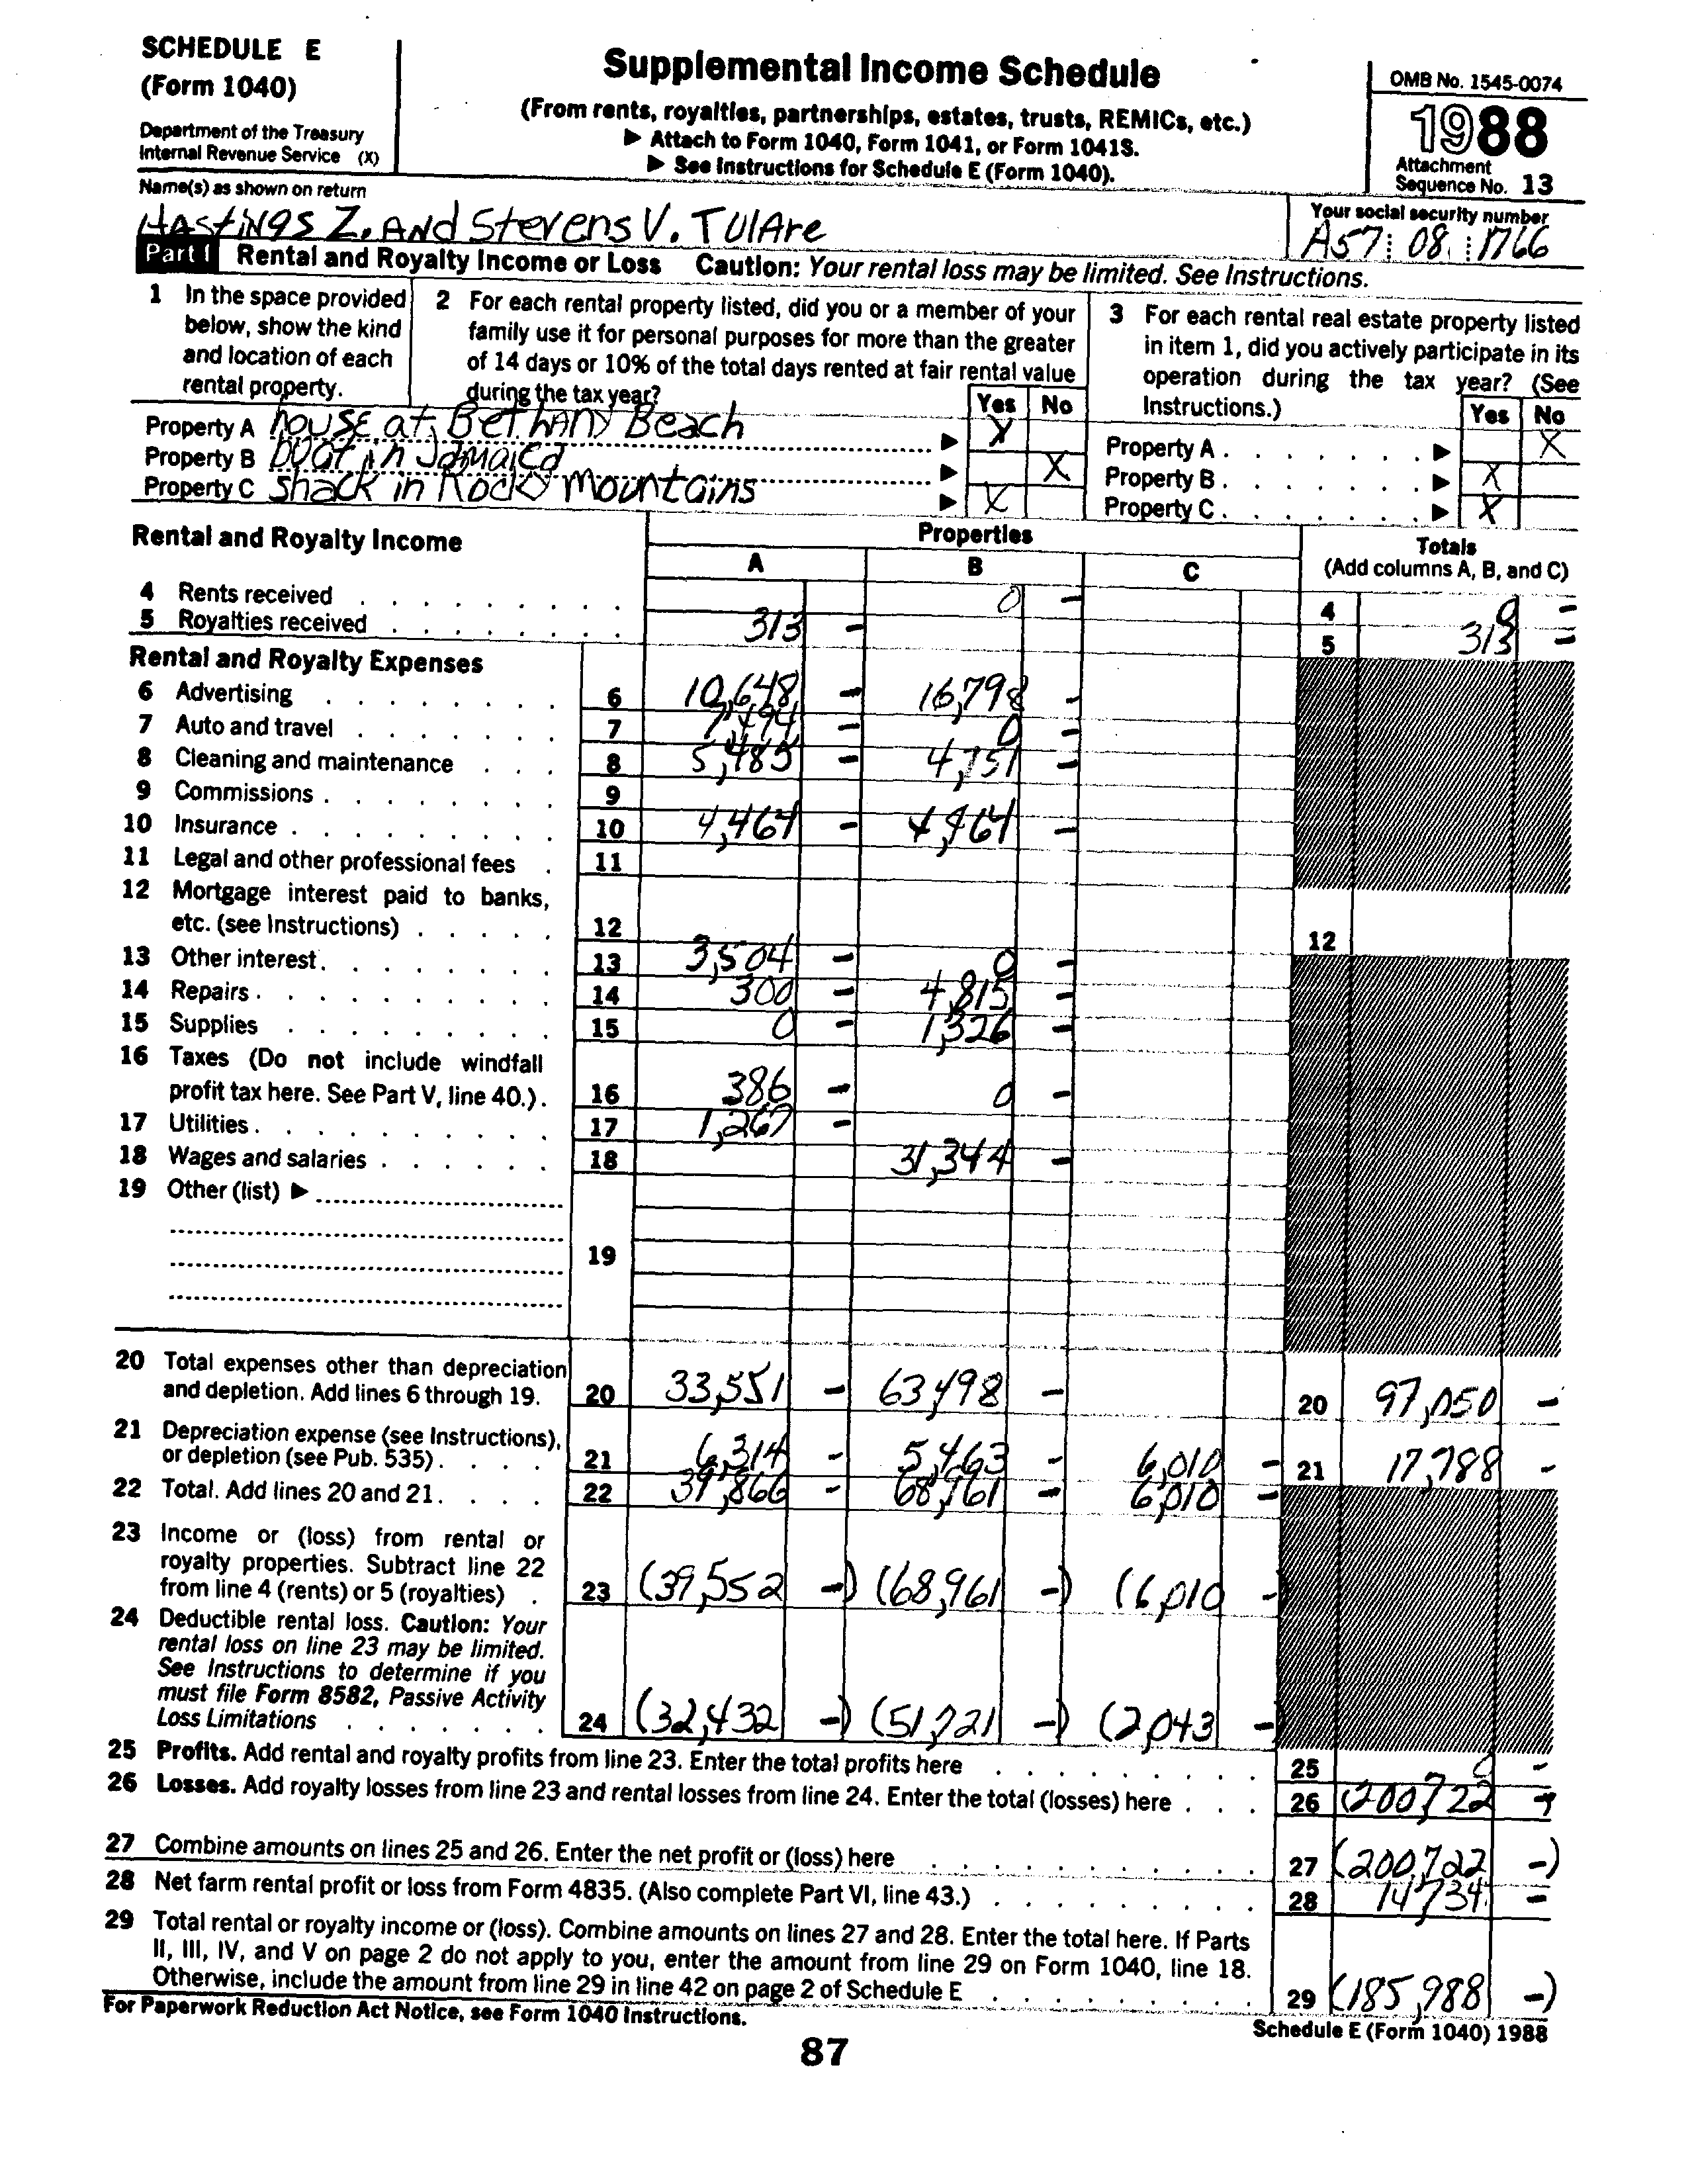 SCHEDULE E
(Form 1040)
Department of the Treasury
Internal Revenue Service (X)
Supplemental Income Schedule
(From rents, royalties, partnerships, estates, trusts, REMICs, etc.)
▶ Attach to Form 1040, Form 1041, or Form 1041S.
▶ See Instructions for Schedule E (Form 1040).
OMB No. 1545-0074
1988
Attachment
Sequence No. 13
Name(s) as shown on return
HAStiNgS Z. ANd StevenS V. TUlAre
Your social security number
A57 08 1766
Part I Rental and Royalty Income or Loss Caution: Your rental loss may be limited. See Instructions.
1 In the space provided
below, show the kind
and location of each
rental property.
2 For each rental property listed, did you or a member of your
family use it for personal purposes for more than the greater
of 14 days or 10% of the total days rented at fair rental value
during the tax year?
Yes No
3 For each rental real estate property listed
in item 1, did you actively participate in its
operation during the tax year? (See
Instructions.)
Yes No
Property A house at BethANy Beach ▶ X
Property B boat in Jamaica ▶ X
Property C shack in Rocky Mountains ▶ X
Property A ▶ X
Property B ▶ X
Property C ▶ X
Rental and Royalty Income
Properties
A B C
Totals
(Add columns A, B, and C)
4 Rents received 0 – 4 0 –
5 Royalties received 313 – 5 313 –
Rental and Royalty Expenses
6 Advertising 6 10,648 – 16,798 –
7 Auto and travel 7 7,494 – 0 –
8 Cleaning and maintenance 8 5,485 – 4,751 –
9 Commissions 9
10 Insurance 10 4,464 – 4,464 –
11 Legal and other professional fees 11
12 Mortgage interest paid to banks,
etc. (see Instructions) 12 12
13 Other interest 13 3,504 – 0 –
14 Repairs 14 300 – 4,815 –
15 Supplies 15 0 – 1,326 –
16 Taxes (Do not include windfall
profit tax here. See Part V, line 40.) 16 386 – 0 –
17 Utilities 17 1,267 –
18 Wages and salaries 18 31,344 –
19 Other (list) ▶
19
20 Total expenses other than depreciation
and depletion. Add lines 6 through 19. 20 33,551 – 63,498 – 20 97,050 –
21 Depreciation expense (see Instructions),
or depletion (see Pub. 535) 21 6,314 – 5,463 – 6,010 – 21 17,788 –
22 Total. Add lines 20 and 21 22 39,866 – 68,961 – 6,010 –
23 Income or (loss) from rental or
royalty properties. Subtract line 22
from line 4 (rents) or 5 (royalties) 23 (39,552 –) (68,961 –) (6,010 –)
24 Deductible rental loss. Caution: Your
rental loss on line 23 may be limited.
See Instructions to determine if you
must file Form 8582, Passive Activity
Loss Limitations 24 (32,432 –) (51,721 –) (2,043 –)
25 Profits. Add rental and royalty profits from line 23. Enter the total profits here 25 0 –
26 Losses. Add royalty losses from line 23 and rental losses from line 24. Enter the total (losses) here 26 (200,722 –)
27 Combine amounts on lines 25 and 26. Enter the net profit or (loss) here 27 (200,722 –)
28 Net farm rental profit or loss from Form 4835. (Also complete Part VI, line 43.) 28 14,734 –
29 Total rental or royalty income or (loss). Combine amounts on lines 27 and 28. Enter the total here. If Parts
II, III, IV, and V on page 2 do not apply to you, enter the amount from line 29 on Form 1040, line 18.
Otherwise, include the amount from line 29 in line 42 on page 2 of Schedule E 29 (185,988 –)
For Paperwork Reduction Act Notice, see Form 1040 Instructions.
Schedule E (Form 1040) 1988
87